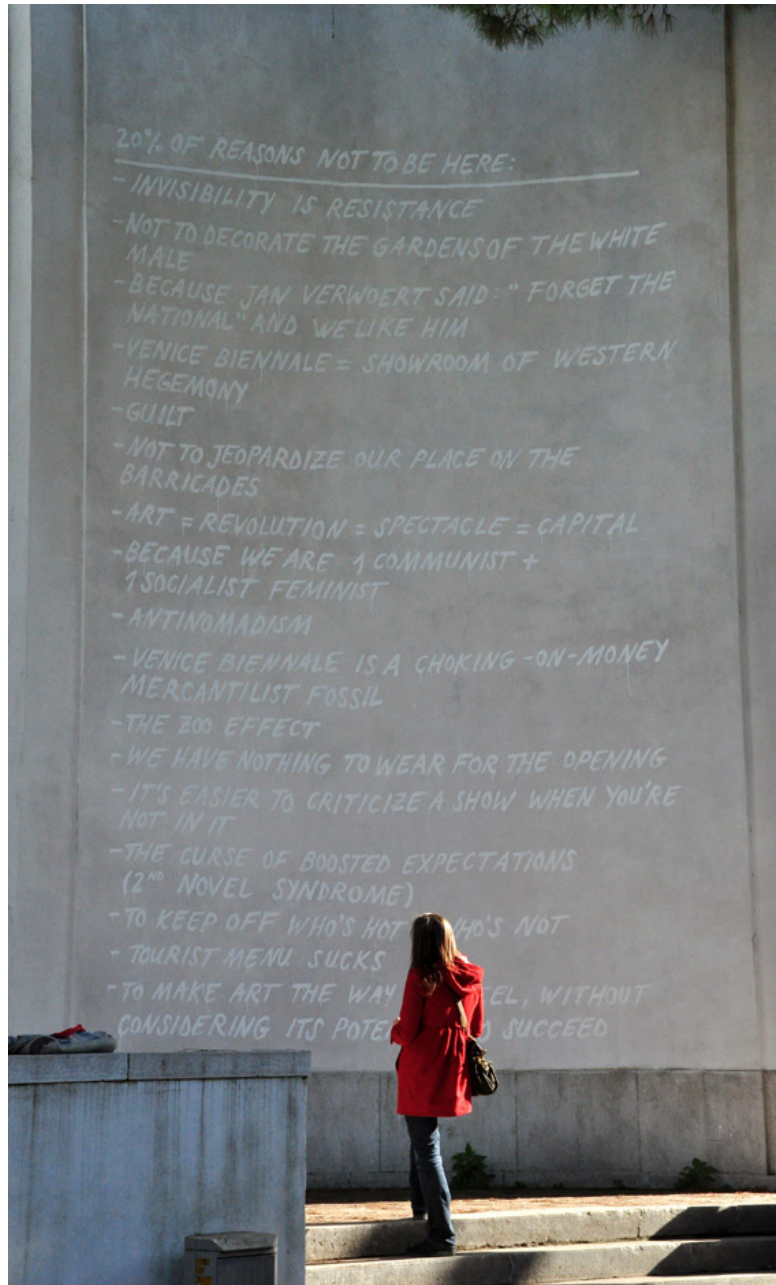 20% OF REASONS NOT TO BE HERE:
- INVISIBILITY IS RESISTANCE
- NOT TO DECORATE THE GARDENS OF THE WHITE
MALE
- BECAUSE JAN VERWOERT SAID: "FORGET THE
NATIONAL" AND WE LIKE HIM
- VENICE BIENNALE = SHOWROOM OF WESTERN
HEGEMONY
- GUILT
- NOT TO JEOPARDIZE OUR PLACE ON THE
BARRICADES
- ART = REVOLUTION = SPECTACLE = CAPITAL
- BECAUSE WE ARE 1 COMMUNIST +
1 SOCIALIST FEMINIST
- ANTINOMADISM
- VENICE BIENNALE IS A CHOKING-ON-MONEY
MERCANTILIST FOSSIL
- THE ZOO EFFECT
- WE HAVE NOTHING TO WEAR FOR THE OPENING
- IT'S EASIER TO CRITICIZE A SHOW WHEN YOU'RE
NOT IN IT
- THE CURSE OF BOOSTED EXPECTATIONS
(2ND NOVEL SYNDROME)
- TO KEEP OFF WHO'S HOT WHO'S NOT
- TOURIST MENU SUCKS
- TO MAKE ART THE WAY WITHOUT
CONSIDERING ITS SUCCEED